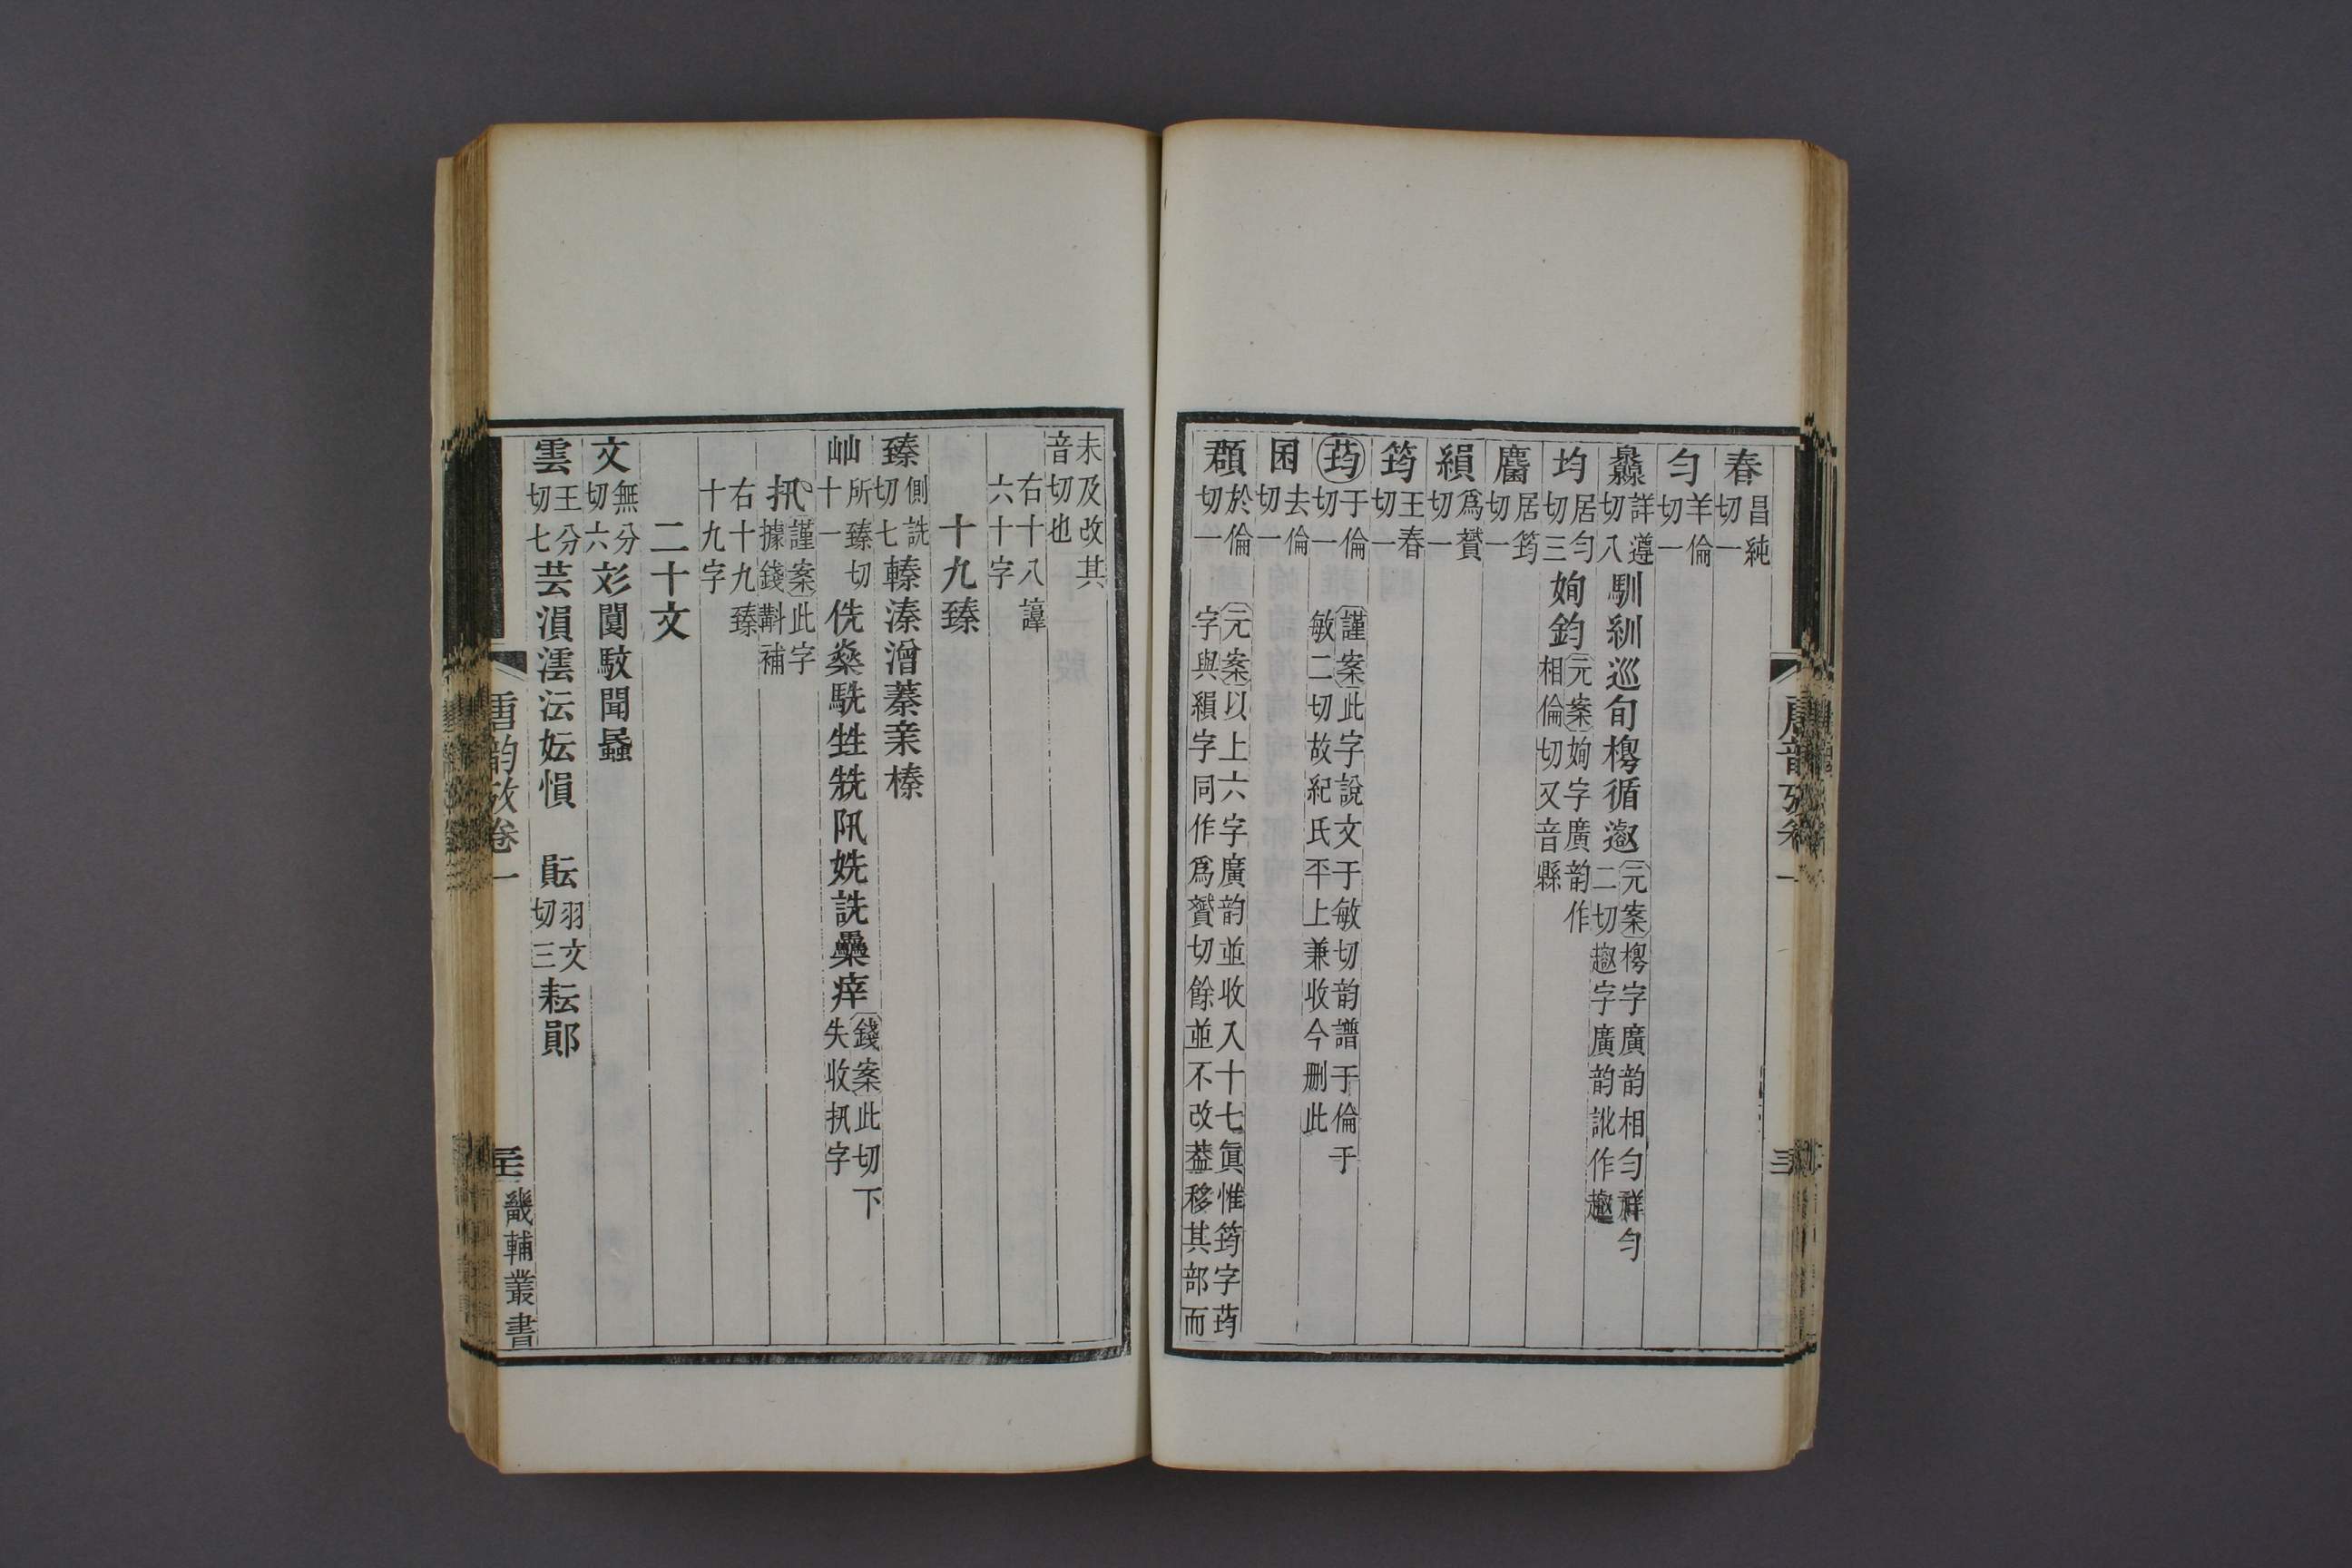 春昌純切一
勻羊倫切一
灥詳遵切八馴紃巡旬楐循𨗨元案楐字廣韵相勻祥勻二切趨字廣韵訛作趨
均居勻切三姰鈞元案姰字廣韵作相倫切又音縣
麏居筠切一
縜爲贇切一
筠王春切一
荺于倫切一謹案此字說文于敏切韵譜于倫于敏二切故紀氏平上兼收今刪此
囷去倫切一
頵於倫切一元案以上六字廣韵並收入十七眞惟筠字荺字與縜字同作爲贇切餘並不改葢移其部而
未及改其音切也
右十八諄六十字
十九臻
臻側詵切七轃溱潧蓁亲榛
屾所臻切十一侁燊駪甡兟阠姺詵㯕痒錢案此切下失收扟字
扟謹案此字據錢斠補
右十九臻十九字
二十文
文無分切六彣閺馼聞蟁
雲王分切七芸溳澐沄妘愪 䢵羽文切三耘鄖
唐韵攷卷一
畿輔叢書